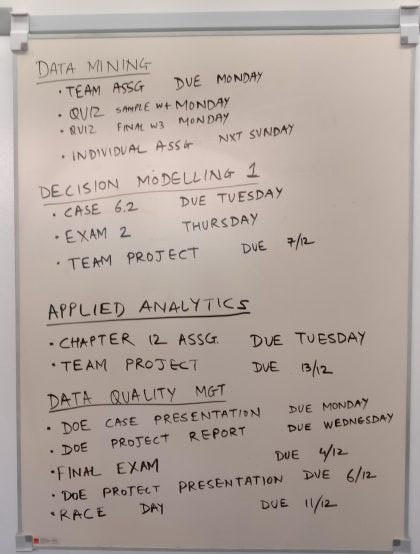 DATA MINING
· TEAM ASSG DUE MONDAY
· QUIZ SAMPLE W4 MONDAY
· QUIZ FINAL W3 MONDAY
· INDIVIDUAL ASSG NXT SUNDAY
DECISION MODELLING 1
· CASE 6.2 DUE TUESDAY
· EXAM 2 THURSDAY
· TEAM PROJECT DUE 7/12
APPLIED ANALYTICS
· CHAPTER 12 ASSG. DUE TUESDAY
· TEAM PROJECT DUE 13/12
DATA QUALITY MGT
· DOE CASE PRESENTATION DUE MONDAY
· DOE PROJECT REPORT DUE WEDNESDAY
· FINAL EXAM DUE 4/12
· DOE PROJECT PRESENTATION DUE 6/12
· RACE DAY DUE 11/12